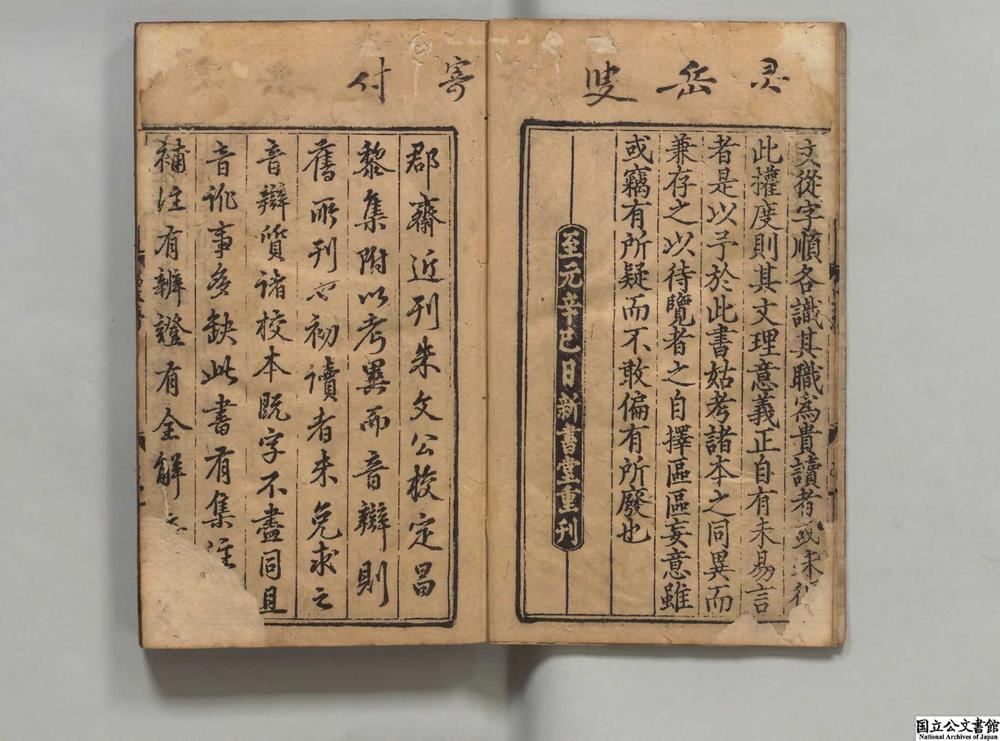 灵岳叟
文從字順各識其職為貴讀者或未得
此攉度則其文理意義正自有未易言
者是以予於此書姑考諸本之同異而
兼存之以待覽者之自擇區區妄意雖
或竊有所疑而不敢偏有所廢也
至元辛巳日新書堂重刊
寄付
郡齋近刊朱文公校定昌
黎集附以考異而音辯則
舊所刊也初讀者未免求之
音辯質諸校本既字不盡同且
音訛事多缺此書有集注
補注有辨證有全解
国立公文書館
National Archives of Japan